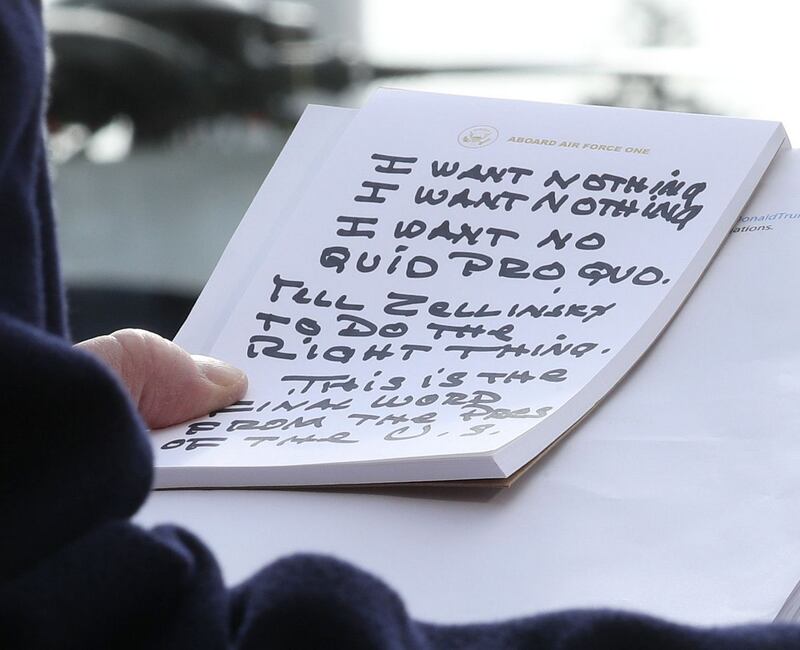 ABOARD AIR FORCE ONE
I WANT NOTHING
I WANT NOTHING
I WANT NO
QUID PRO QUO.
TELL ZELLINSKY
TO DO THE
RIGHT THING.
THIS IS THE
FINAL WORD
FROM THE PRES
OF THE U.S.
onaldTru
ations.